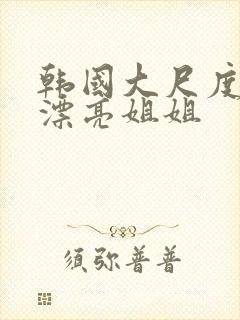 韩國大尺度
漂亮姐姐
须弥普普